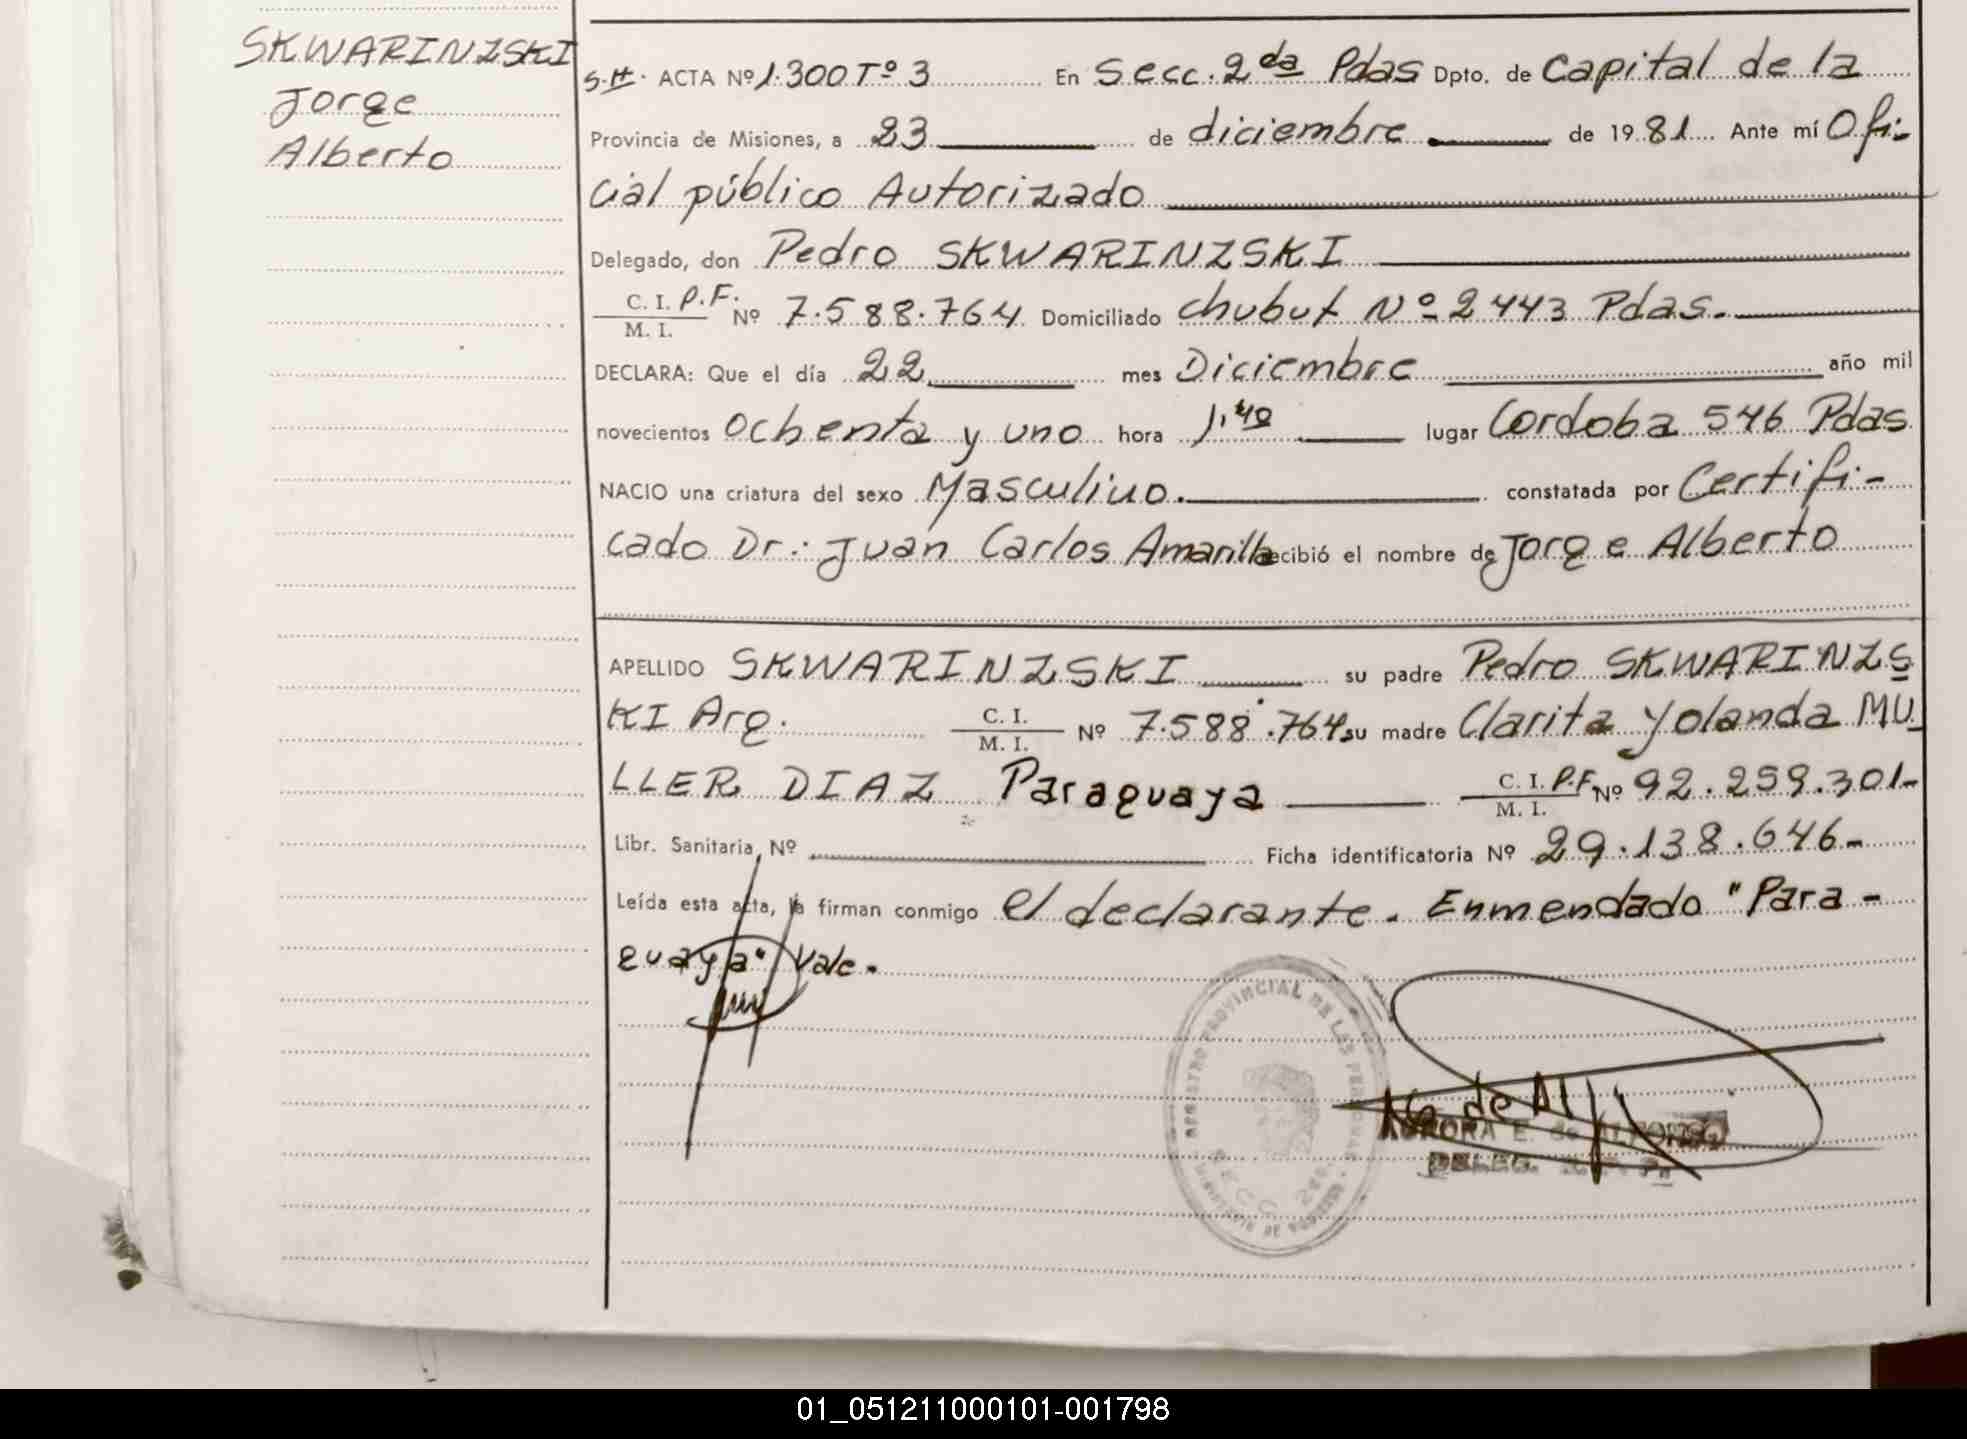 SKWARINZSKI
Jorge
Alberto
S.H. ACTA Nº 1.300 Tº 3 En Secc. 2da Pdas Dpto. de Capital de la
Provincia de Misiones, a 23 de diciembre de 1981 Ante mí Ofi-
cial público Autorizado
Delegado, don Pedro SKWARINZSKI
C. I. P.F.
M. I. Nº 7.588.764 Domiciliado Chubut Nº 2443 Pdas.
DECLARA: Que el día 22 mes Diciembre año mil
novecientos Ochenta y uno hora 1,40 lugar Cordoba 546 Pdas
NACIO una criatura del sexo Masculino. constatada por Certifi-
cado Dr.: Juan Carlos Amarilla recibió el nombre de Jorge Alberto
APELLIDO SKWARINZSKI su padre Pedro SKWARINZS
KI Arg. C. I. M. I. Nº 7.588.764 su madre Clarita Yolanda MU
LLER DIAZ Paraguaya C. I. P.F. M. I. Nº 92.259.301-
Libr. Sanitaria, Nº Ficha identificatoria Nº 29.138.646-
Leída esta acta, la firman conmigo el declarante. Enmendado "Para-
guaya" Vale.
REGISTRO PROVINCIAL DE LAS PERSONAS
SECC. 2da
AURORA E. de
DELEG.
01_051211000101-001798